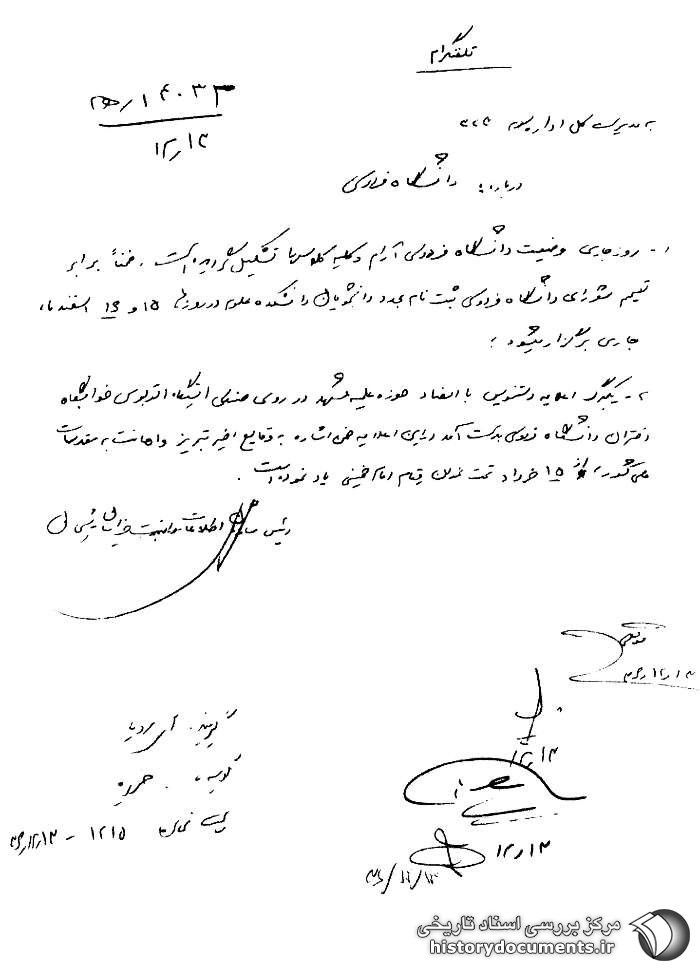 تلفنگرام
۱۴۰۳۳/ ۵ه۱
۱۲/۱۳
به مدیریت کل اداره سوم ۳۲۴
درباره: دانشگاه فردوسی
۱- روز جاری وضعیت دانشگاه فردوسی آرام و کلیه کلاسها تشکیل گردیده است. ضمناً برابر
تصمیم شورای دانشگاه فردوسی ثبت نام مجدد دانشجویان دانشکده علوم در روزهای ۱۵ و ۱۶ اسفندماه
جاری برگزار میشود.
۲- یکبرگ اعلامیه دستنویس با امضاء حوزه علمیه مشهد در روی صندلی ایستگاه اتوبوس خوابگاه
دختران دانشگاه فردوسی بدست آمد در این اعلامیه ضمن اشاره به وقایع اخیر تبریز و اهانت به مقدسات
کشور، از ۱۵ خرداد تحت عنوان قیام امام خمینی یاد نموده است.
رئیس سازمان اطلاعات و امنیت خراسان
۳۶/۱۲/۱۳
۱۲/۱۳
۱۲/۱۳
۳۶/۱۲/۱۳
گوینده:
گیرنده:
ساعت ۱۲۱۵ - ۳۶/۱۲/۱۳
مرکز بررسی اسناد تاریخی
historydocuments.ir